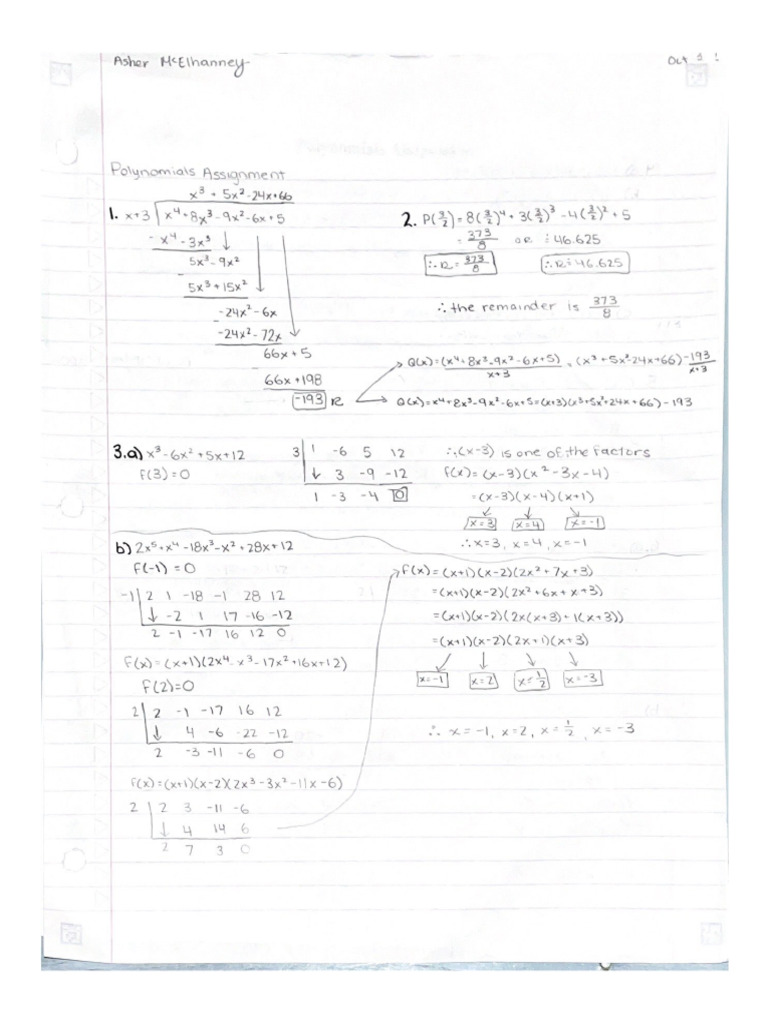 Asher McElhanney
Oct
Polynomials Assignment
x³ + 5x² -24x+66
1. x+3 | x⁴+8x³-9x²-6x+5
- x⁴-3x³ ↓
5x³-9x²
- 5x³+15x²
-24x²-6x
- -24x²-72x
66x+5
- 66x+198
-193 R
2. P(3/2)=8(3/2)⁴+3(3/2)³-4(3/2)²+5
= 373/8 OR ≐46.625
∴R=373/8 ∴R≐46.625
∴the remainder is 373/8
→Q(x)=(x⁴+8x³-9x²-6x+5)/(x+3) = (x³+5x²-24x+66) -193/(x+3)
→Q(x)=x⁴+8x³-9x²-6x+5=(x+3)(x³+5x²+24x+66)-193
3.a) x³-6x²+5x+12
f(3)=0
3 | 1 -6 5 12
↓ 3 -9 -12
1 -3 -4 0
∴(x-3) is one of the factors
f(x)=(x-3)(x²-3x-4)
=(x-3)(x-4)(x+1)
x=3 x=4 x=-1
∴x=3, x=4, x=-1
b) 2x⁵+x⁴-18x³-x²+28x+12
f(-1)=0
-1 | 2 1 -18 -1 28 12
↓ -2 1 17 -16 -12
2 -1 -17 16 12 0
f(x)=(x+1)(2x⁴-x³-17x²+16x+12)
f(2)=0
2 | 2 -1 -17 16 12
↓ 4 -6 -22 -12
2 -3 -11 -6 0
f(x)=(x+1)(x-2)(2x³-3x²-11x-6)
2 | 2 3 -11 -6
↓ 4 14 6
2 7 3 0
→f(x)=(x+1)(x-2)(2x²+7x+3)
=(x+1)(x-2)(2x²+6x+x+3)
=(x+1)(x-2)(2x(x+3)+1(x+3))
=(x+1)(x-2)(2x+1)(x+3)
x=-1 x=2 x=½ x=-3
∴ x=-1, x=2, x=½, x=-3